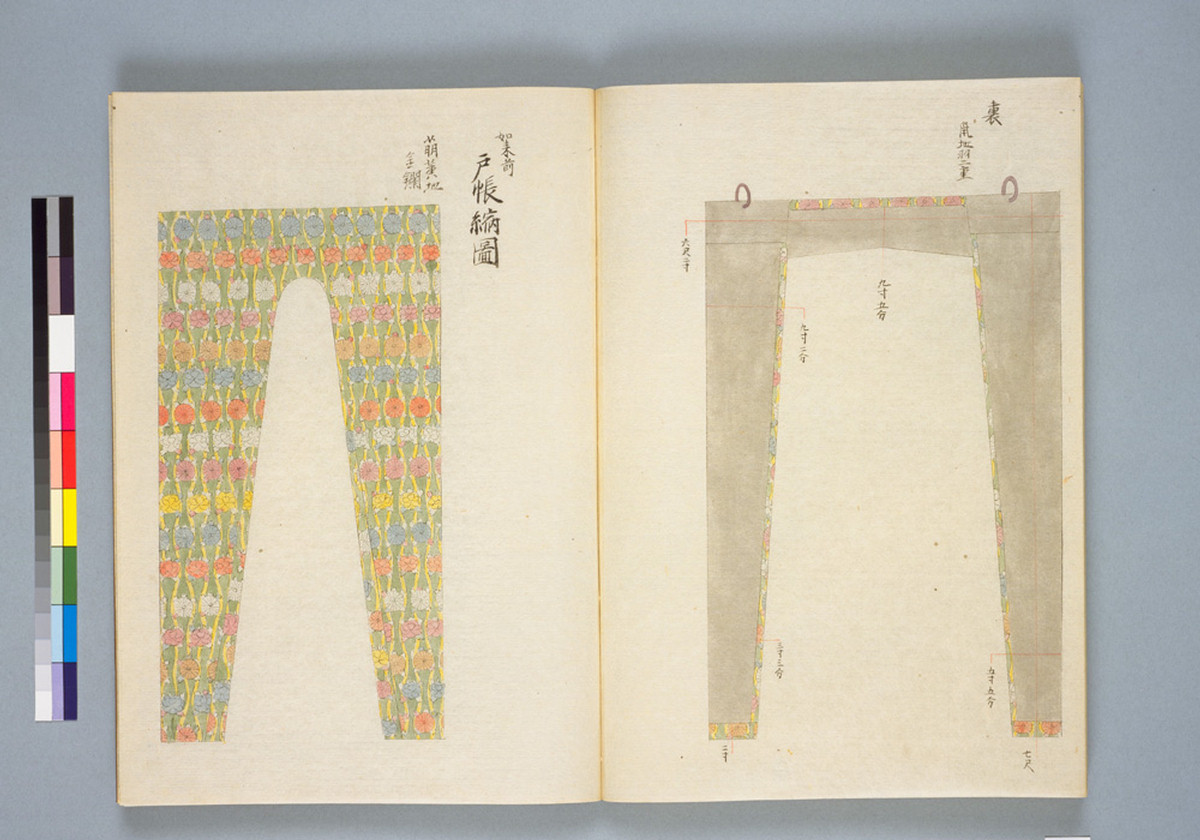 裏
鼠地羽二重
六尺二寸
九寸五分
九寸二分
三寸三分
五寸五分
二寸
七尺
如来前
戸帳縮圖
萠黄地
金襴